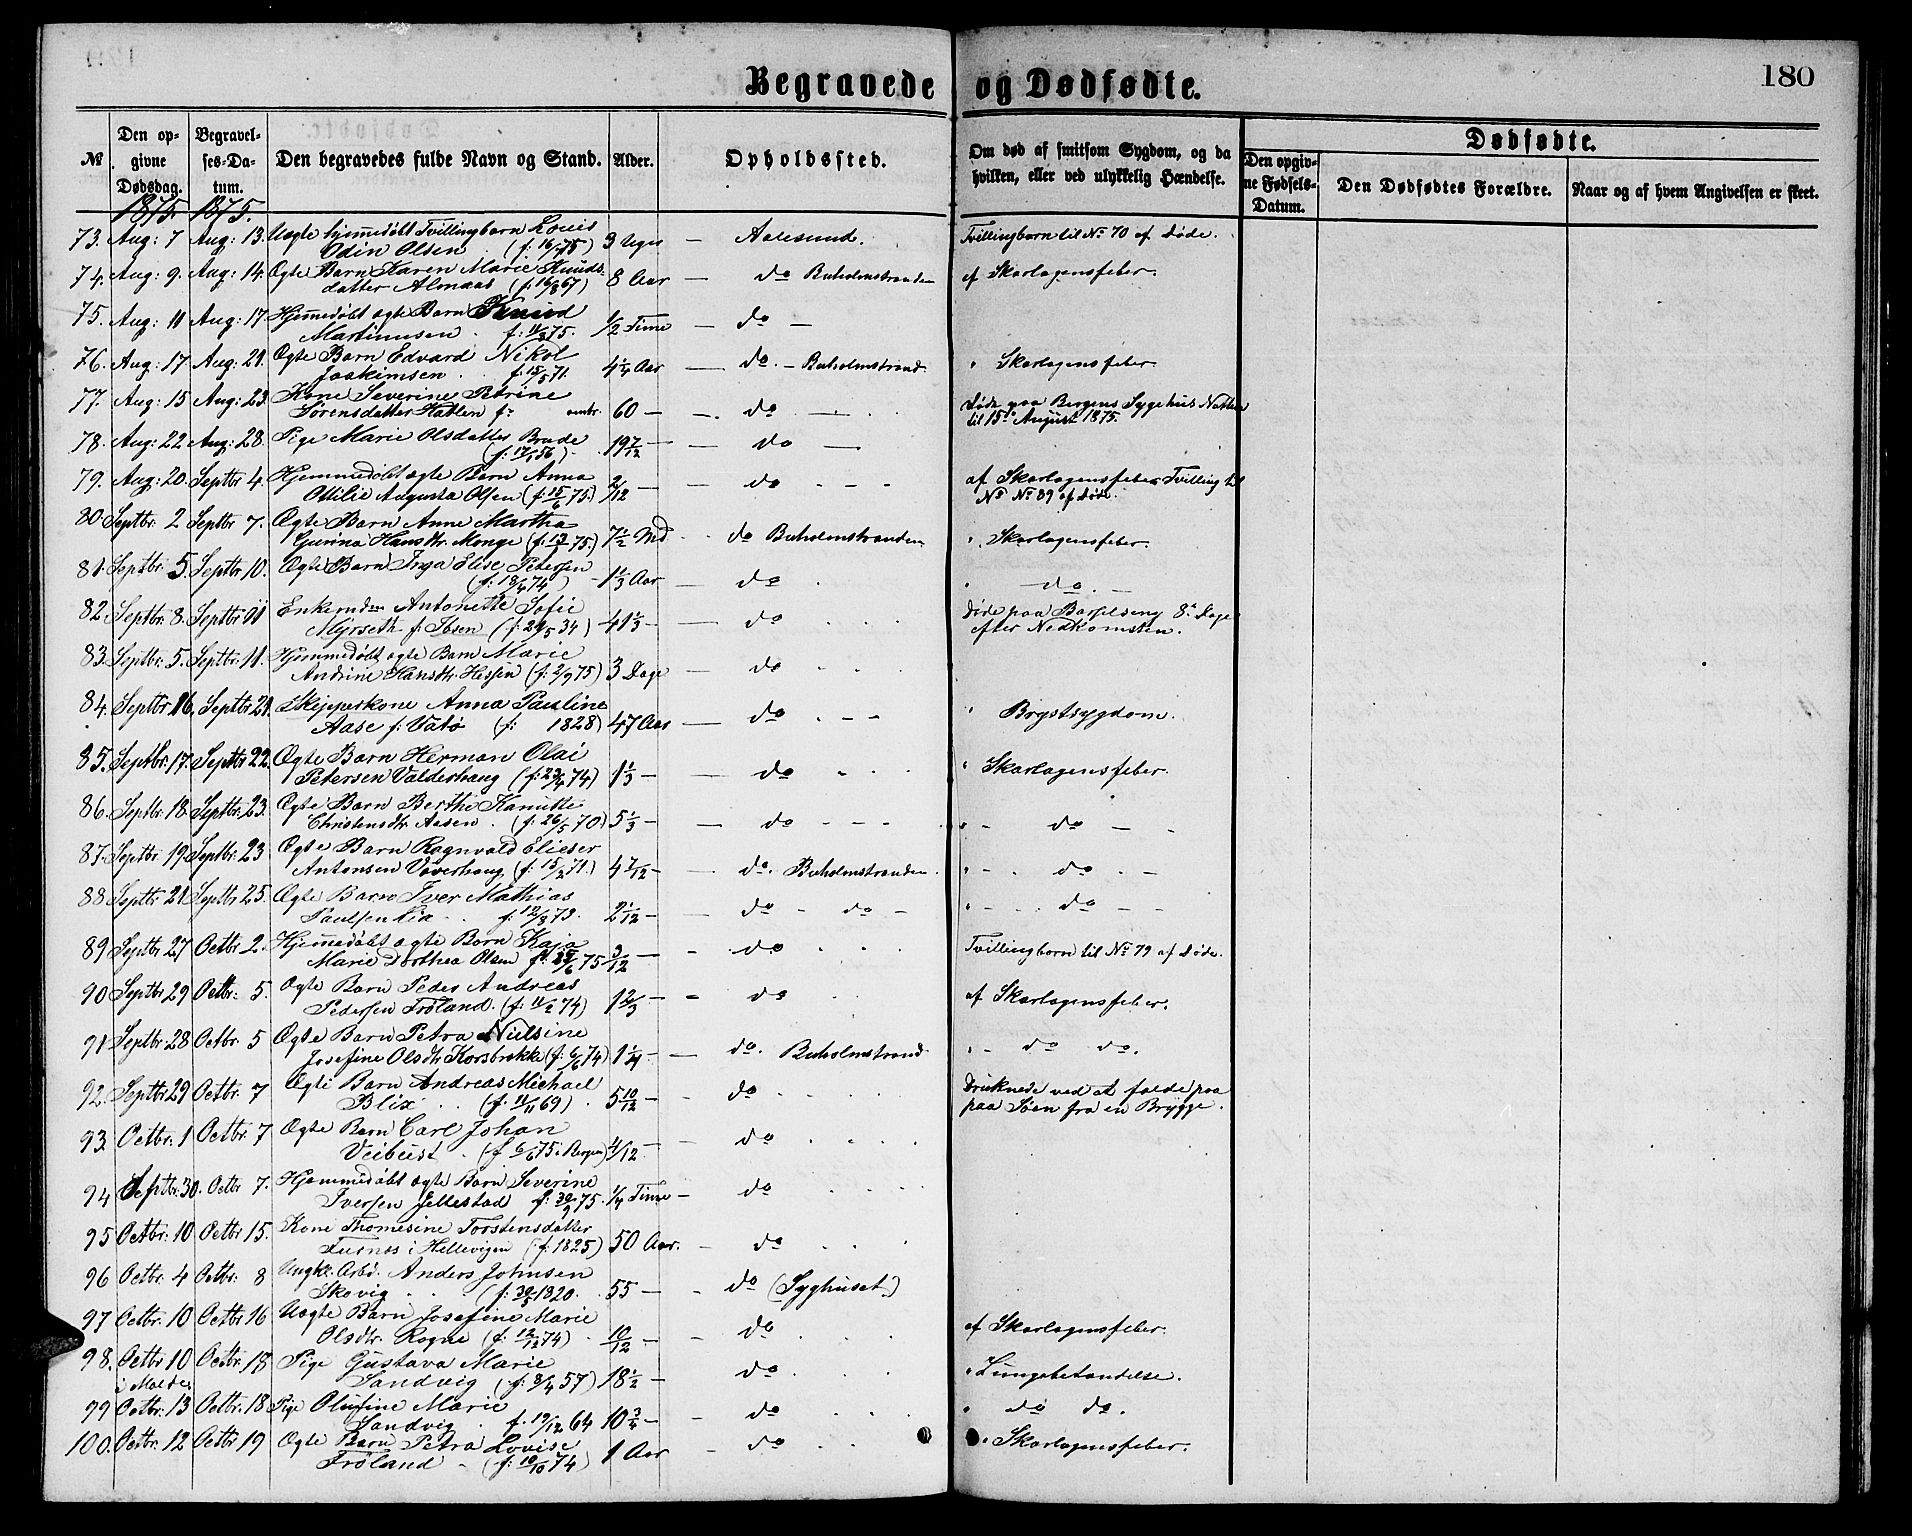 Begravede og Dødfødte.
180
№
Den opgivne Dødsdag.
Begravelses-Datum.
Den begravedes fulde Navn og Stand.
Alder.
Opholdssted.
Om død af smitsom Sygdom, og da hvilken, eller ved ulykkelig Hændelse.
Dødfødte.
Den opgivne Fødsels-Datum.
Den Dødfødtes Forældre.
Naar og af hvem Angivelsen er skeet.
1875. 1875.
73. Aug: 7 Aug: 13. Uægte hjemmedøbt Tvillingbarn Louis
Odin Olsen (f: 16/6 75) 3 Uger — Aalesund. Tvillingbarn til № 70 af Døde.
74. Aug: 9. Aug: 14. Ægte Barn Karen Marie Knuds-
datter Alnæs (f: 16/8 67) 8 Aar — do Buholmstranden af Skarlagensfeber.
75. Aug: 11 Aug: 17. Hjemmedøbt ægte Barn Knud
Martinussen f: 11/8 75. 1/2 Time — do —
76. Aug: 17 Aug: 21. Ægte Barn Edvard Nikol
Joakimsen f: 15/5 71. 4 1/4 Aar — do. — Buholmstrand. " Skarlagensfeber.
77. Aug: 15 Aug: 23. Kone Severine Petrine
Sørensdatter Hatlen f: omtr. 60 — do — Døde paa Bergens Sygehus Natten
til 15de August 1875.
78. Aug: 22 Aug: 28. Pige Marie Olsdatter Brude
(f: 17/1 56) 19 7/12 — do —
79. Aug: 20. Septbr 4. Hjemmedøbt ægte Barn Anna
Ottilie Augusta Olsen (f: 15/6 75.) 2/12 — do af Skarlagensfeber Tvilling til
№ № 89 af Døde.
80. Septbr. 2 Septbr 7. Ægte Barn Anne Martha
Gurina Hansdtr. Monge (f: 13/1 75.) 7 1/2 Md do Buholmstranden " Skarlagensfeber.
81. Septbr. 5. Septbr 10. Ægte Barn Inga Elise Petersen
(f: 18/4 74) 1 1/3 Aar — do " do
82. Septbr. 8. Septbr 11 Enkemdm Antonette Sofie
Myrseth f. Ibsen (f: 29/5 34) 41 1/3 — do Døde paa Barselseng 8te Dage
efter Nedkomsten.
83. Septbr. 5. Septbr. 11. Hjemmedøbt ægte Barn Marie
Andrine Hansdtr. Hessen (f: 2/9 75) 3 Dage — do
84. Septbr 16. Septbr 21. Skipperkone Anna Pauline
Aase f. Vatø (f: 1828) 47 Aar — do " Brystsygdom.
85. Septbr. 17. Septbr 22. Ægte Barn Herman Olai
Petersen Valderhaug (f: 23/4 74) 1 1/3 — do " Skarlagensfeber.
86. Septbr 18. Septbr: 23. Ægte Barn Berthe Kanutte
Christensdtr. Aasen. (f: 26/5 70) 5 1/3 — do " do
87. Septbr 19 Septbr. 23 Ægte Barn Ragnvald Elieser
Antonsen Vaverhaug (f: 15/2 71.) 4 7/12 — do. Buholmstranden " do
88 Septbr 21 Septbr 25. Ægte Barn Iver Mathias
Paulsen Lia f: 12/8 73. 2 1/12 — do — do — " do
89 Septbr 27 Octbr 2. Hjemmedøbt ægte Barn Kaja
Marie Dorthea Olsen f: 15/6 75 3/12 — do Tvillingbarn til № 79 af Døde.
90 Septbr 29 Octbr: 5. Ægte Barn Peder Andreas
Pedersen Frøland. (f: 11/2 74) 1 2/3 — do af Skarlagensfeber.
91 Septbr 28 Octbr. 5 Ægte Barn Petra Nielsine
Josefine Olsdtr. Korsbrekke (f: 6/6 74) 1 1/4 — do. Buholmstrand " do do.
92. Septbr 29 Octbr. 7 Ægte Barn Andreas Michael
Blix (f: 11/11 69) 5 10/12 — do Druknede ved at falde paa
paa Søen fra en Brygge.
93. Octbr: 1 Octbr. 7 Ægte Barn Carl Johan
Veibust (f. 6/6 75 i Bergen) 4/12 do
94 Septbr: 30. Octbr 7. Hjemmedøbt ægte Barn Severine
Iversen Jellestad f: 30/9 75. 1/4 Time — do
95 Octbr: 10 Octbr 15. Kone Thomesine Torstensdatter
Fusnes i Hellevigen (f: 1825) 50 Aar. do
96 Octbr: 4 Octbr: 8 Ungk. Arbd. Anders Johnsen
Skovig (f: 30/5 1820. 55 — do (Syghuset)
97 Octbr: 10 Octbr 16 Uægte Barn Josefine Marie
Olsdtr. Rogne (f: 12/12 74) 10/12 — do af Skarlagensfeber.
98. Octbr 10 Octbr. 18 Pige Gustava Marie
i Molde Sandvig (f: 8/4 57) 18 1/2 — do " Lungebetændelse.
99 Octbr: 13 Octbr. 18 Pige Olufine Marie
Sandvig f. 19/12 64 10 3/4 — do " do do.
100. Octbr: 12 Octbr 19 Ægte Barn Petra Lovise
Frøland (f: 10/10 74) 1 Aar — do " Skarlagensfeber.